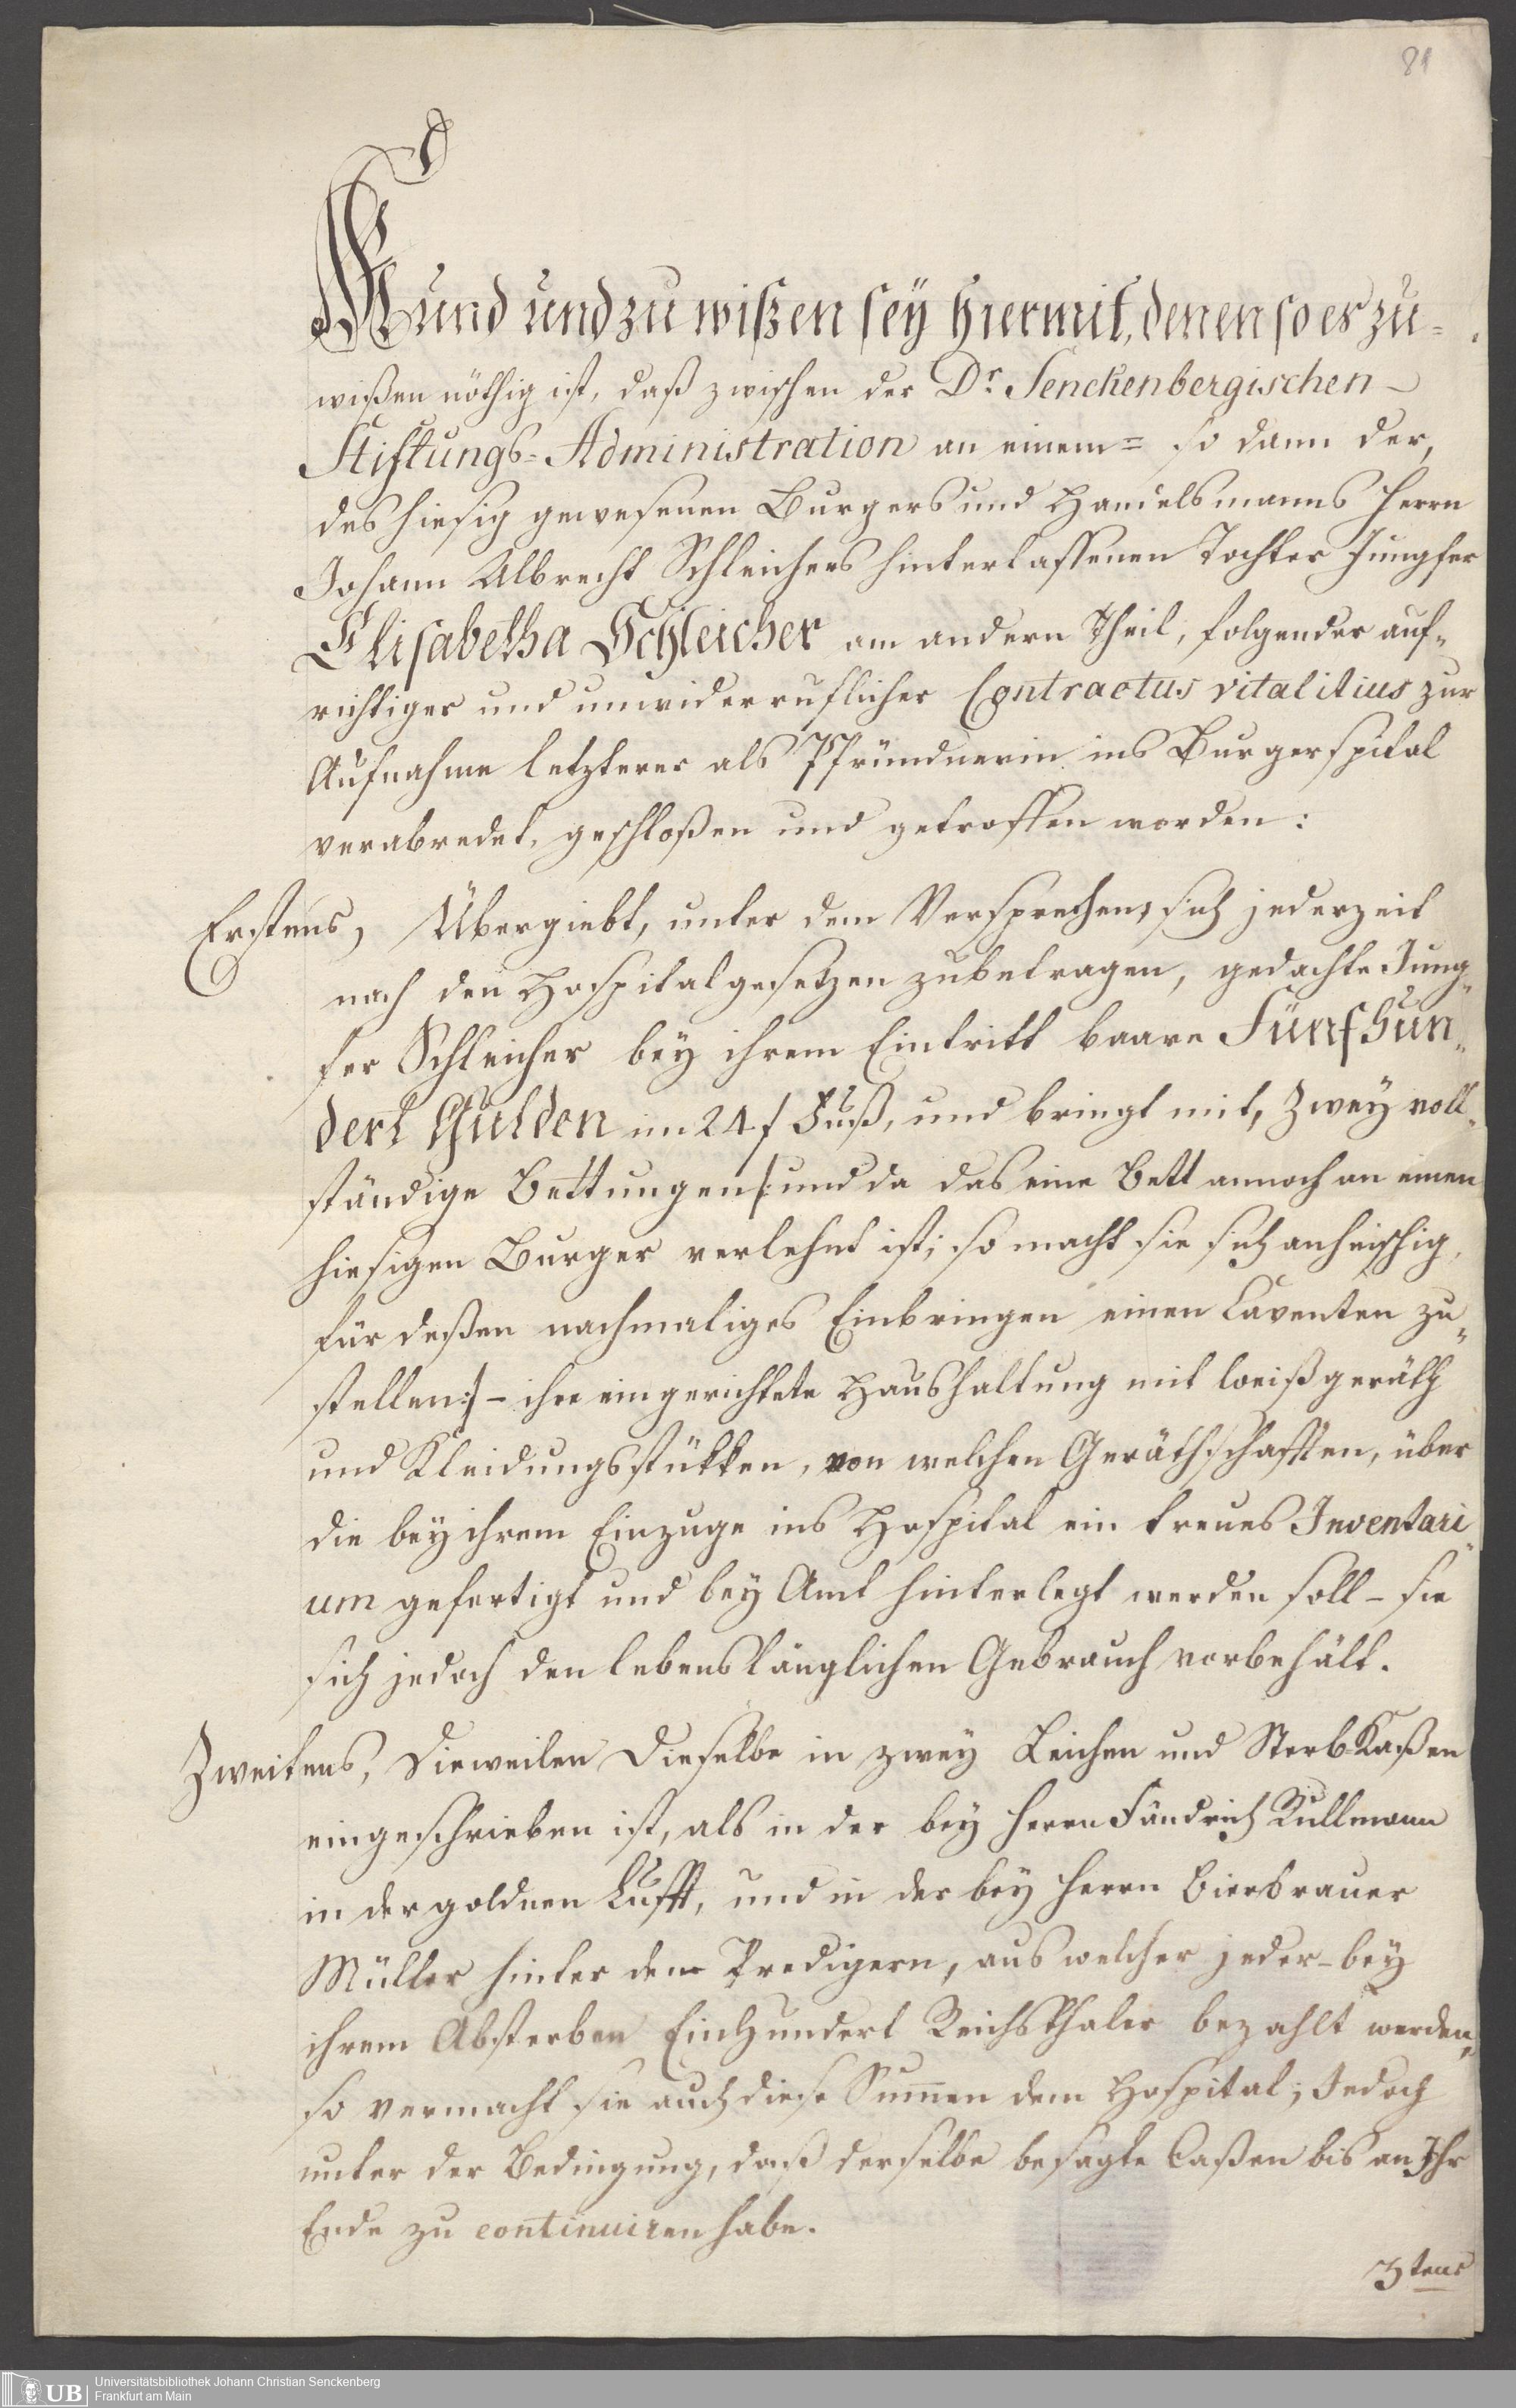 81
Kund und zu wißen sey hiermit, denen so es zu=
wißen nöthig ist, daß zwischen der Dr. Senckenbergischen
Stiftungs=Administration an einem= so dann der,
des hiesig gewesenen Burgers und Handelsmanns Herrn
Johann Albrecht Schleichers hinterlassenen Tochter Jungfer
Elisabetha Schleicher am andern Theil, folgender auf=
richtiger und unwiderruflicher Contractus vitalitius zur
Aufnahme letzterer als Pfründnerin ins Burgerspital
verabredet, geschloßen und getroffen worden:
Erstens, Übergiebt, unter dem Versprechen, sich jederzeit
nach den Hospitalgesetzen zubetragen, gedachte Jung„
fer Schleicher bey ihrem Eintritt baare Fünfhun„
dert Gulden im 24 f Fuß, und bringt mit, zwey voll„
ständige Bettungen /: und da das eine Bett annoch an einen
hiesigen Burger verlehnt ist; so macht sie sich anheischig,
für deßen nachmaliges Einbringen einen Caventen zu„
stellen :/ – ihre eingerichtete Haushaltung mit Weißgeräth
und Kleidungsstükken, von welchen Geräthschafften, über
die bey ihrem Einzuge ins Hospital ein treues Inventari„
um gefertigt und bey Amt hinterlegt werden soll – sie
sich jedoch den lebenslänglichen Gebrauch vorbehält.
Zweitens, Dieweilen Dieselbe in zwey Leichen und Sterb-Kaßen
eingeschrieben ist, als in der bey Herrn Fändrich Kullmann
in der goldnen Lufft, und in der bey Herrn Bierbrauer
Müller hinter den Predigern, aus welcher jeder – bey
ihrem Absterben Einhundert Reichsthaler bezahlt werden,
so vermacht sie auch diese Sum̄en dem Hospital; Jedoch
unter der Bedingung, daß derselbe besagte Caßen bis an Ihr
Ende zu continuiren habe.
3tens
UB Universitätsbibliothek Johann Christian Senckenberg
Frankfurt am Main